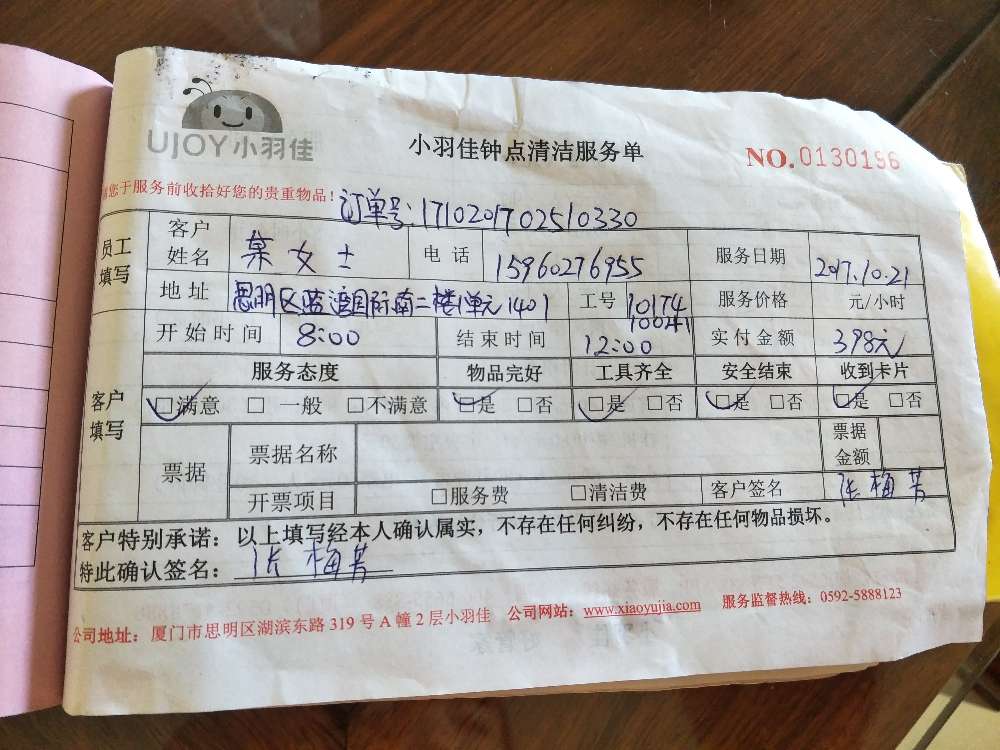 UJOY小羽佳
小羽佳钟点清洁服务单
NO.0130196
您于服务前收拾好您的贵重物品!
订单号:1710201702510330
员工填写 客户姓名 某女士 电话 15960276955 服务日期 2017.10.21
地址 思明区蓝湾国际南二楼1单元1401 工号 10174 100241 服务价格 元/小时
开始时间 8:00 结束时间 12:00 实付金额 398元
客户填写 服务态度 物品完好 工具齐全 安全结束 收到卡片
☑满意 □一般 □不满意 ☑是 □否 ☑是 □否 ☑是 □否 ☑是 □否
票据 票据名称 票据金额
开票项目 □服务费 □清洁费 客户签名 张梅芳
客户特别承诺:以上填写经本人确认属实,不存在任何纠纷,不存在任何物品损坏。
特此确认签名:张梅芳
公司地址:厦门市思明区湖滨东路 319 号 A 幢 2 层小羽佳 公司网站:www.xiaoyujia.com 服务监督热线:0592-5888123